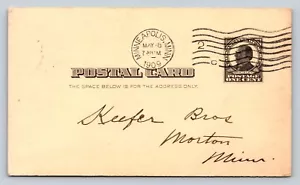 MINNEAPOLIS, MINN.
MAY
1909
2
POSTAL CARD
THE SPACE BELOW IS FOR THE ADDRESS ONLY.
POSTAGE
ONE CENT
Keefer Bros
Morton
Minn.